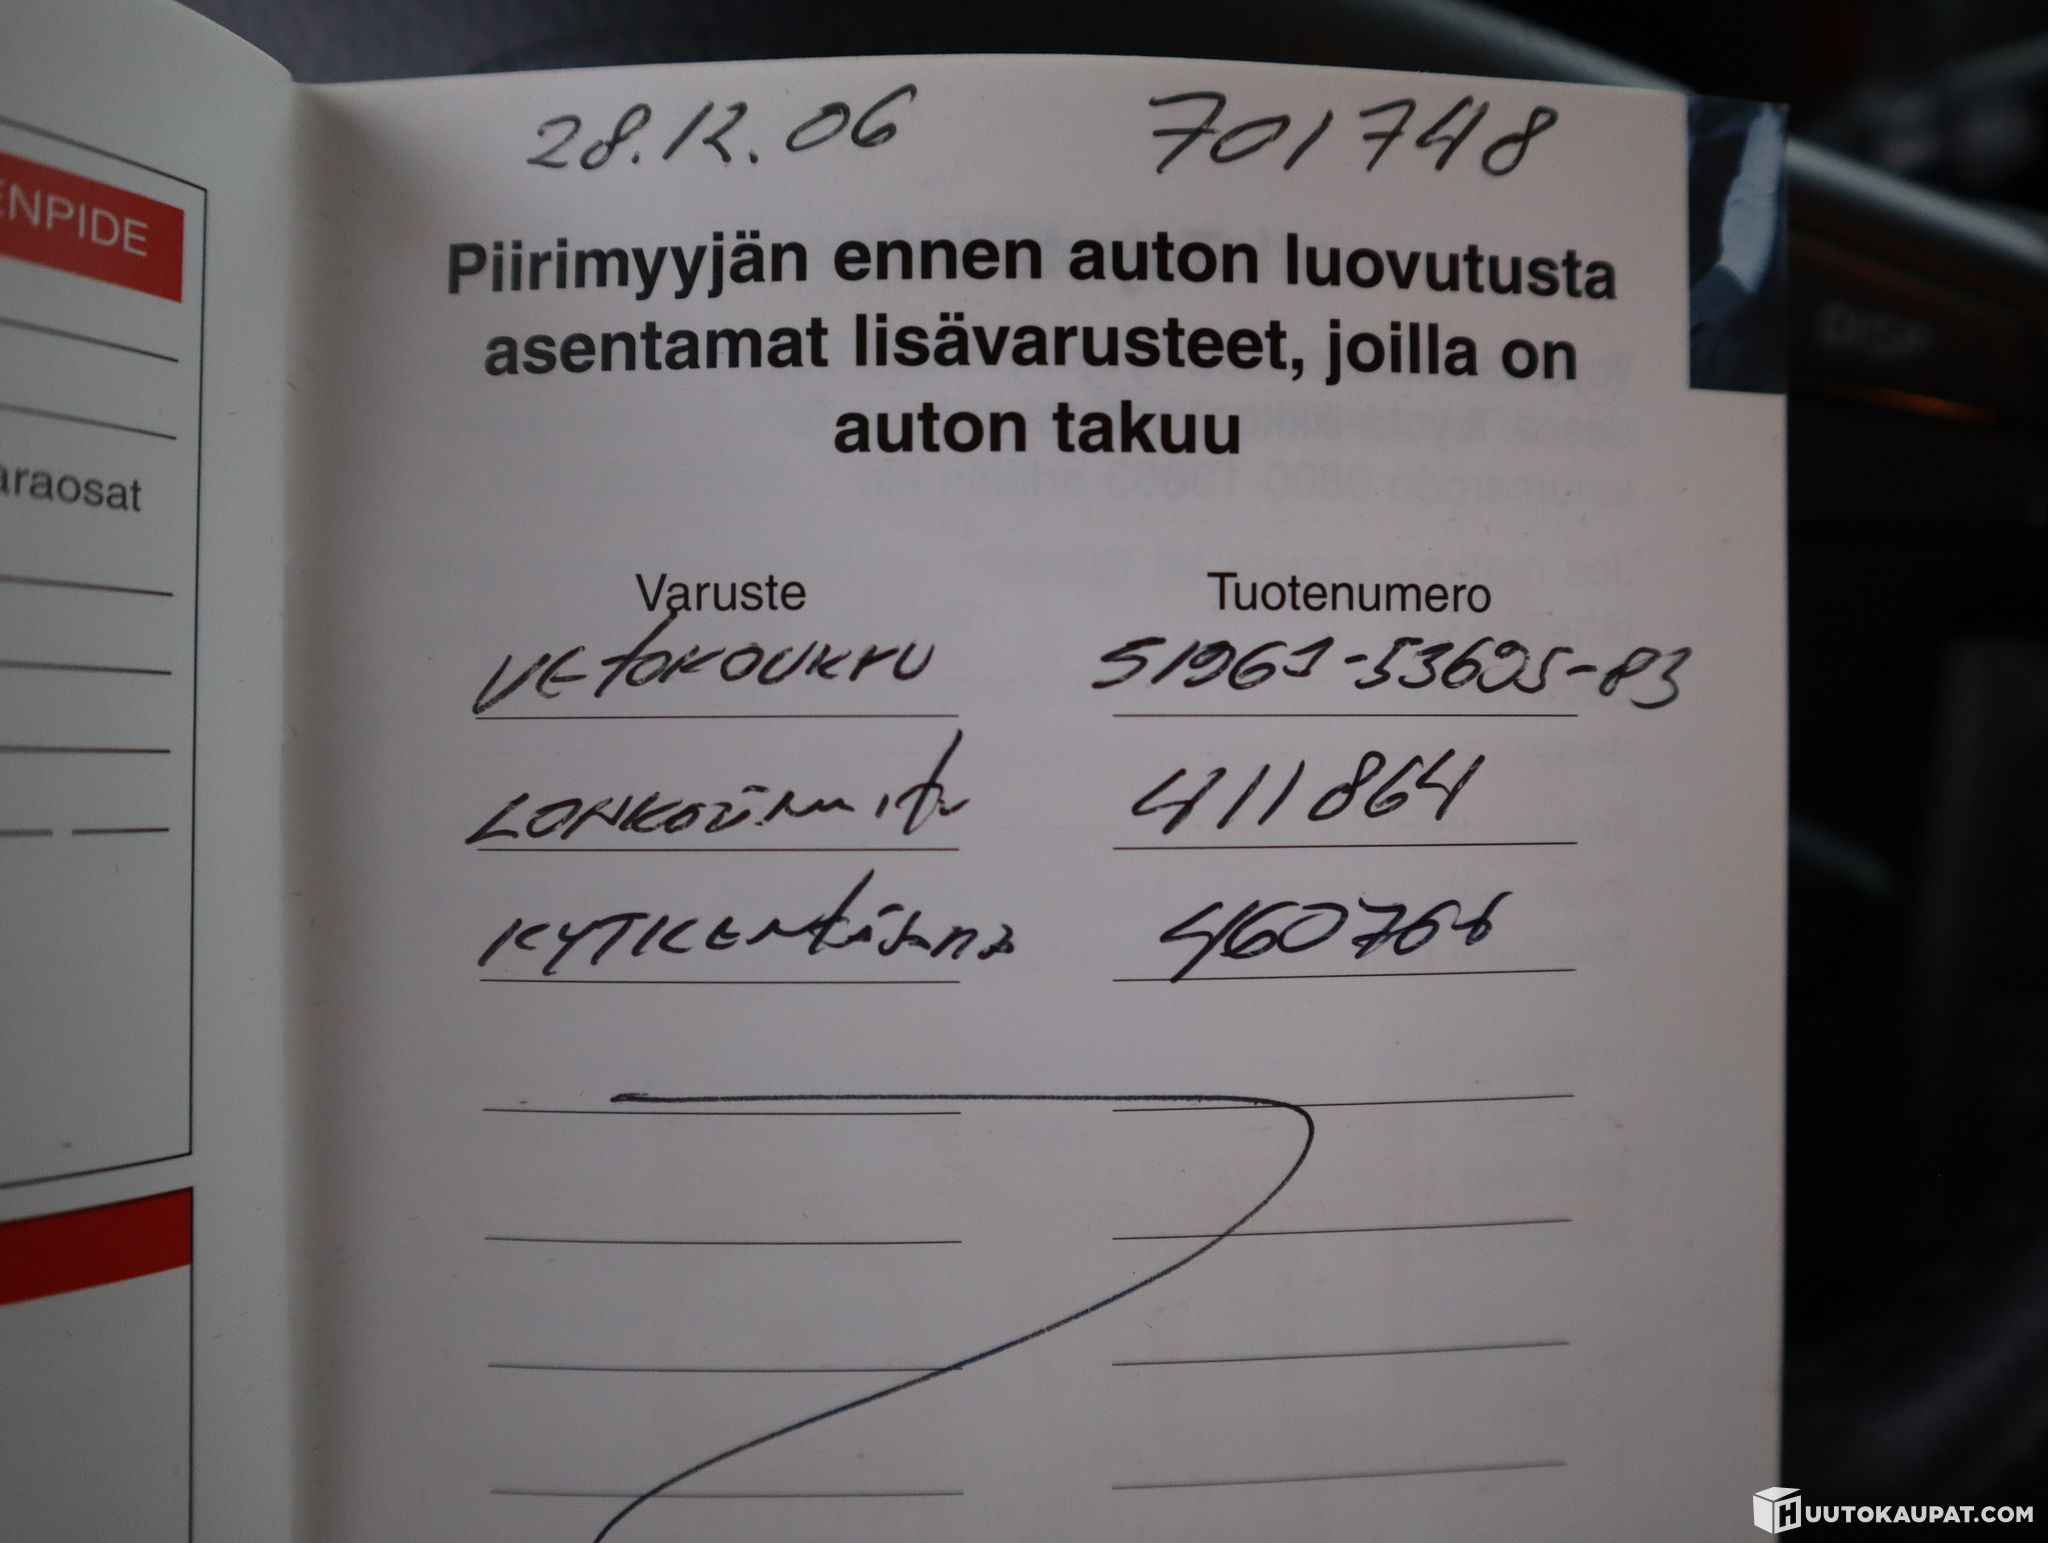 28.12.06 701748
Piirimyyjän ennen auton luovutusta
asentamat lisävarusteet, joilla on
auton takuu
Varuste Tuotenumero
VETOKOUKKU 51961-53695-83
411864
460768
ENPIDE
araosat
DISP
HUUTOKAUPAT.COM